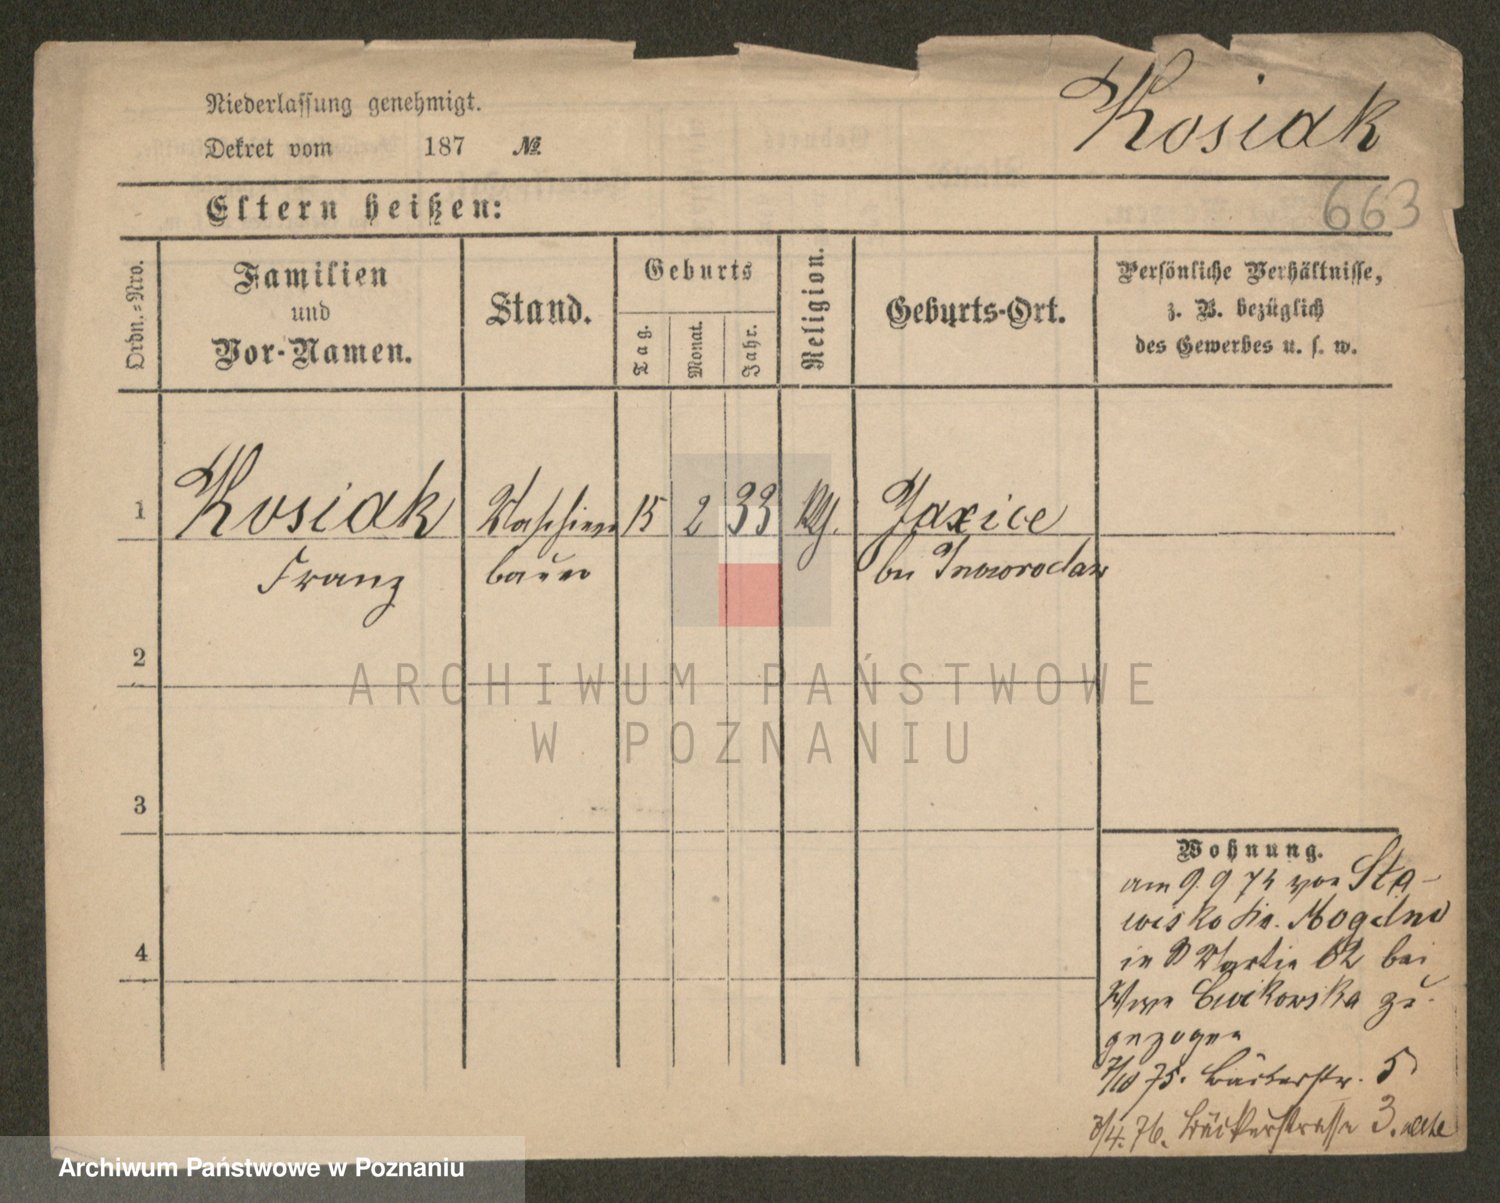 Niederlassung genehmigt.
Dekret vom 187 №
Kosiak
663
Eltern heißen:
Ordn.-Nro.
Familien
und
Vor-Namen.
Stand.
Geburts
Tag.
Monat.
Jahr.
Religion.
Geburts-Ort.
Persönliche Verhältnisse,
z. B. bezüglich
des Gewerbes u. s. w.
1
Kosiak
Franz
Maschinen
bauer
15
2
33
Jaxice
bei Inowroclaw
2
3
4
Wohnung.
am 9. 9 74 von Sta-
wisko Kr. Mogilno
in St Martin 62 bei
Wwe Cwikowska zu-
gezogen
7/10 75. Bäckerstr. 5
3/4. 76. Bäckerstrasse 3.
ARCHIWUM PAŃSTWOWE
W POZNANIU
Archiwum Państwowe w Poznaniu